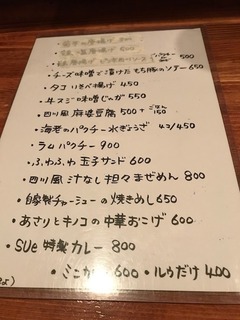 厚揚げ 600
500
・チーズ味噌で漬けたもち豚のソテー 650
・タコ いそべ揚げ 450
・牛スジ味噌じゃが 550
・四川風 麻婆豆腐 500 +ごはん 150
・海老のパクチー水ぎょうざ 4コ/450
・ラム パクチー 900
・ふわふわ 玉子サンド 600
・四川風 汁なし 担々まぜめん 800
・自家製チャーシューの焼きめし 650
・あさりとキノコの中華おこげ 600
・SUe 特製カレー 800
・ミニカレー 600 ・ルゥだけ 400